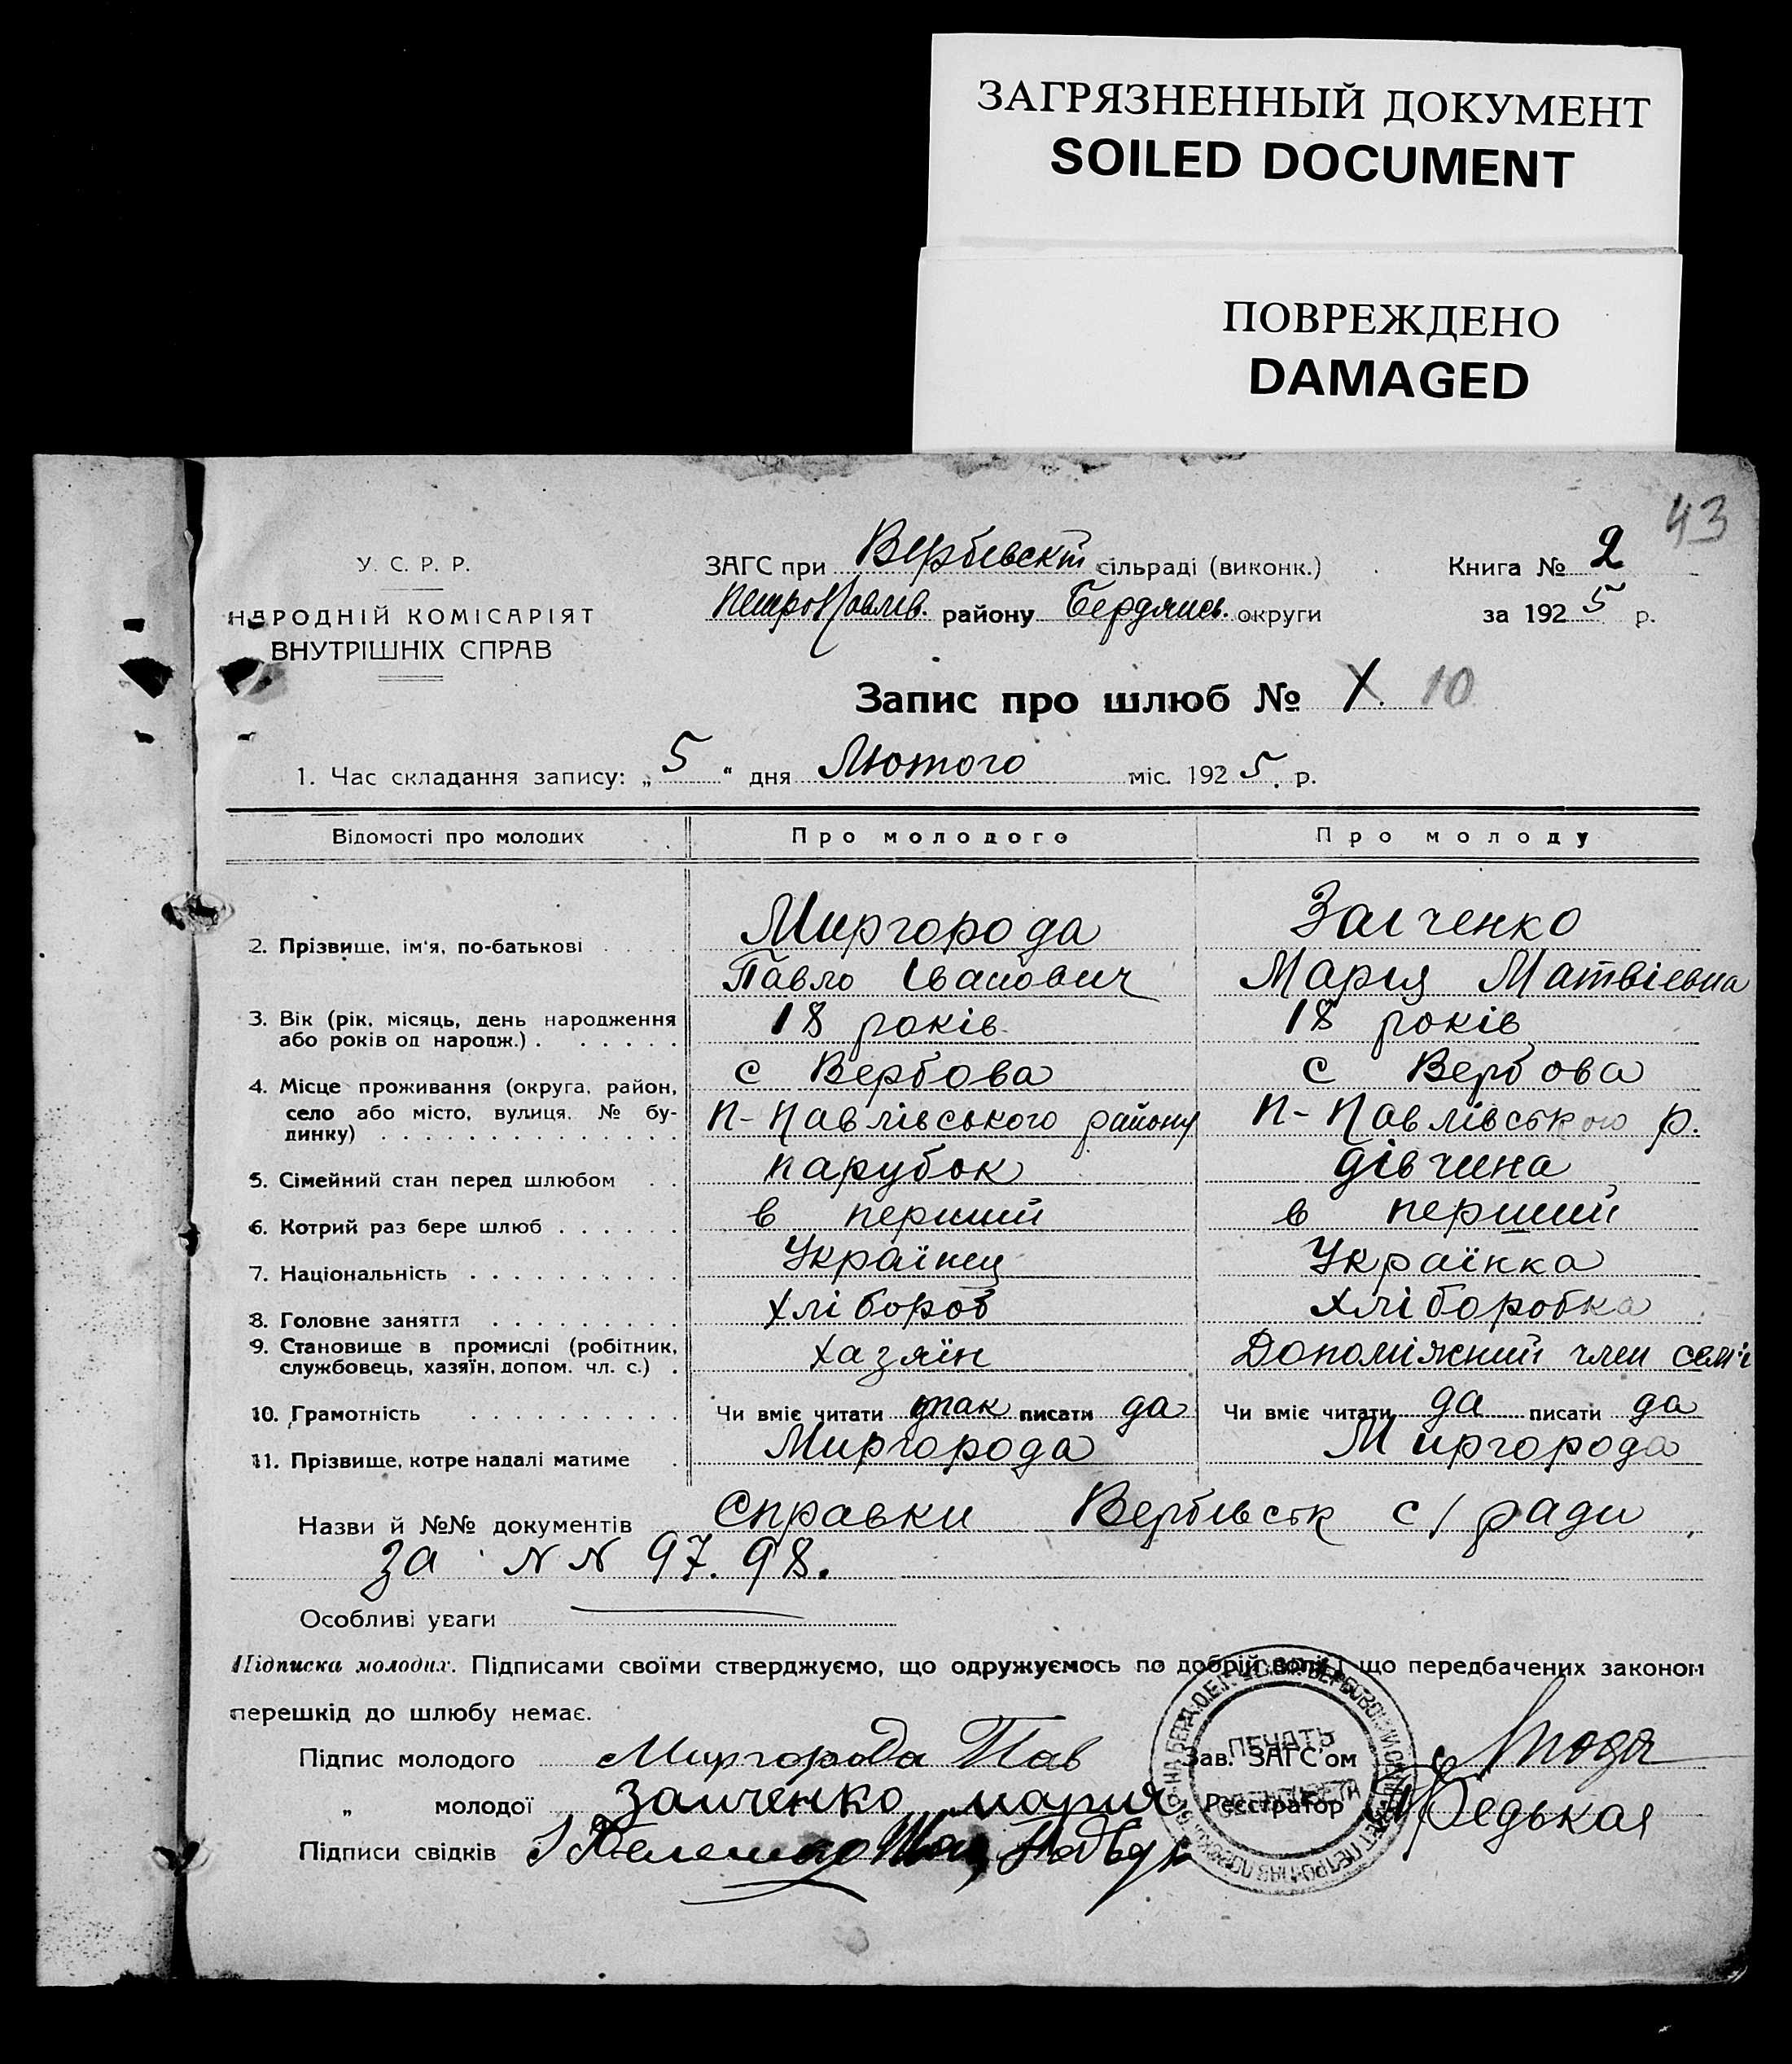 ЗАГРЯЗНЕННЫЙ ДОКУМЕНТ
SOILED DOCUMENT
ПОВРЕЖДЕНО
DAMAGED
43
У. С. Р. Р.
НАРОДНІЙ КОМІСАРІЯТ
ВНУТРІШНІХ СПРАВ
ЗАГС при Вербівскій сільраді (виконк.)
ПетроПавлів. району Бердянсь. округи
Книга № 2
за 1925 р.
Запис про шлюб № 10
1. Час складання запису: „5“ дня Лютого міс. 1925 р.
Відомості про молодих Про молодого Про молоду
2. Прізвище, ім'я, по-батькові Миргорода Заіченко
Павло Іванович Марія Матвіевна
3. Вік (рік, місяць, день народження або років од народж.) 18 років 18 років
4. Місце проживання (округа, район, село або місто, вулиця, № будинку) с Вербова с Вербова
П-Павлівського району П-Павлівського р.
5. Сімейний стан перед шлюбом парубок дівчина
6. Котрий раз бере шлюб в перший в перший
7. Національність Українец Українка
8. Головне заняття хлібороб хліборобка
9. Становище в промислі (робітник, службовець, хазяїн, допом. чл. с.) хазяїн Допоміжний член семʼї
10. Грамотність Чи вміє читати так писати да Чи вміє читати да писати да
11. Прізвище, котре надалі матиме Миргорода Миргорода
Назви й №№ документів Справки Вербівськ с/ради
за NN 97. 98.
Особливі уваги
Підписка молодих. Підписами своїми стверджуємо, що одружуємось по добрій волі і що передбачених законом
перешкід до шлюбу немає.
Підпис молодого Миргорода Пав
Зав. ЗАГС'ом
„ молодої Заиченко мария
Реєстратор Федькая
Підписи свідків
ПЕЧАТЬ